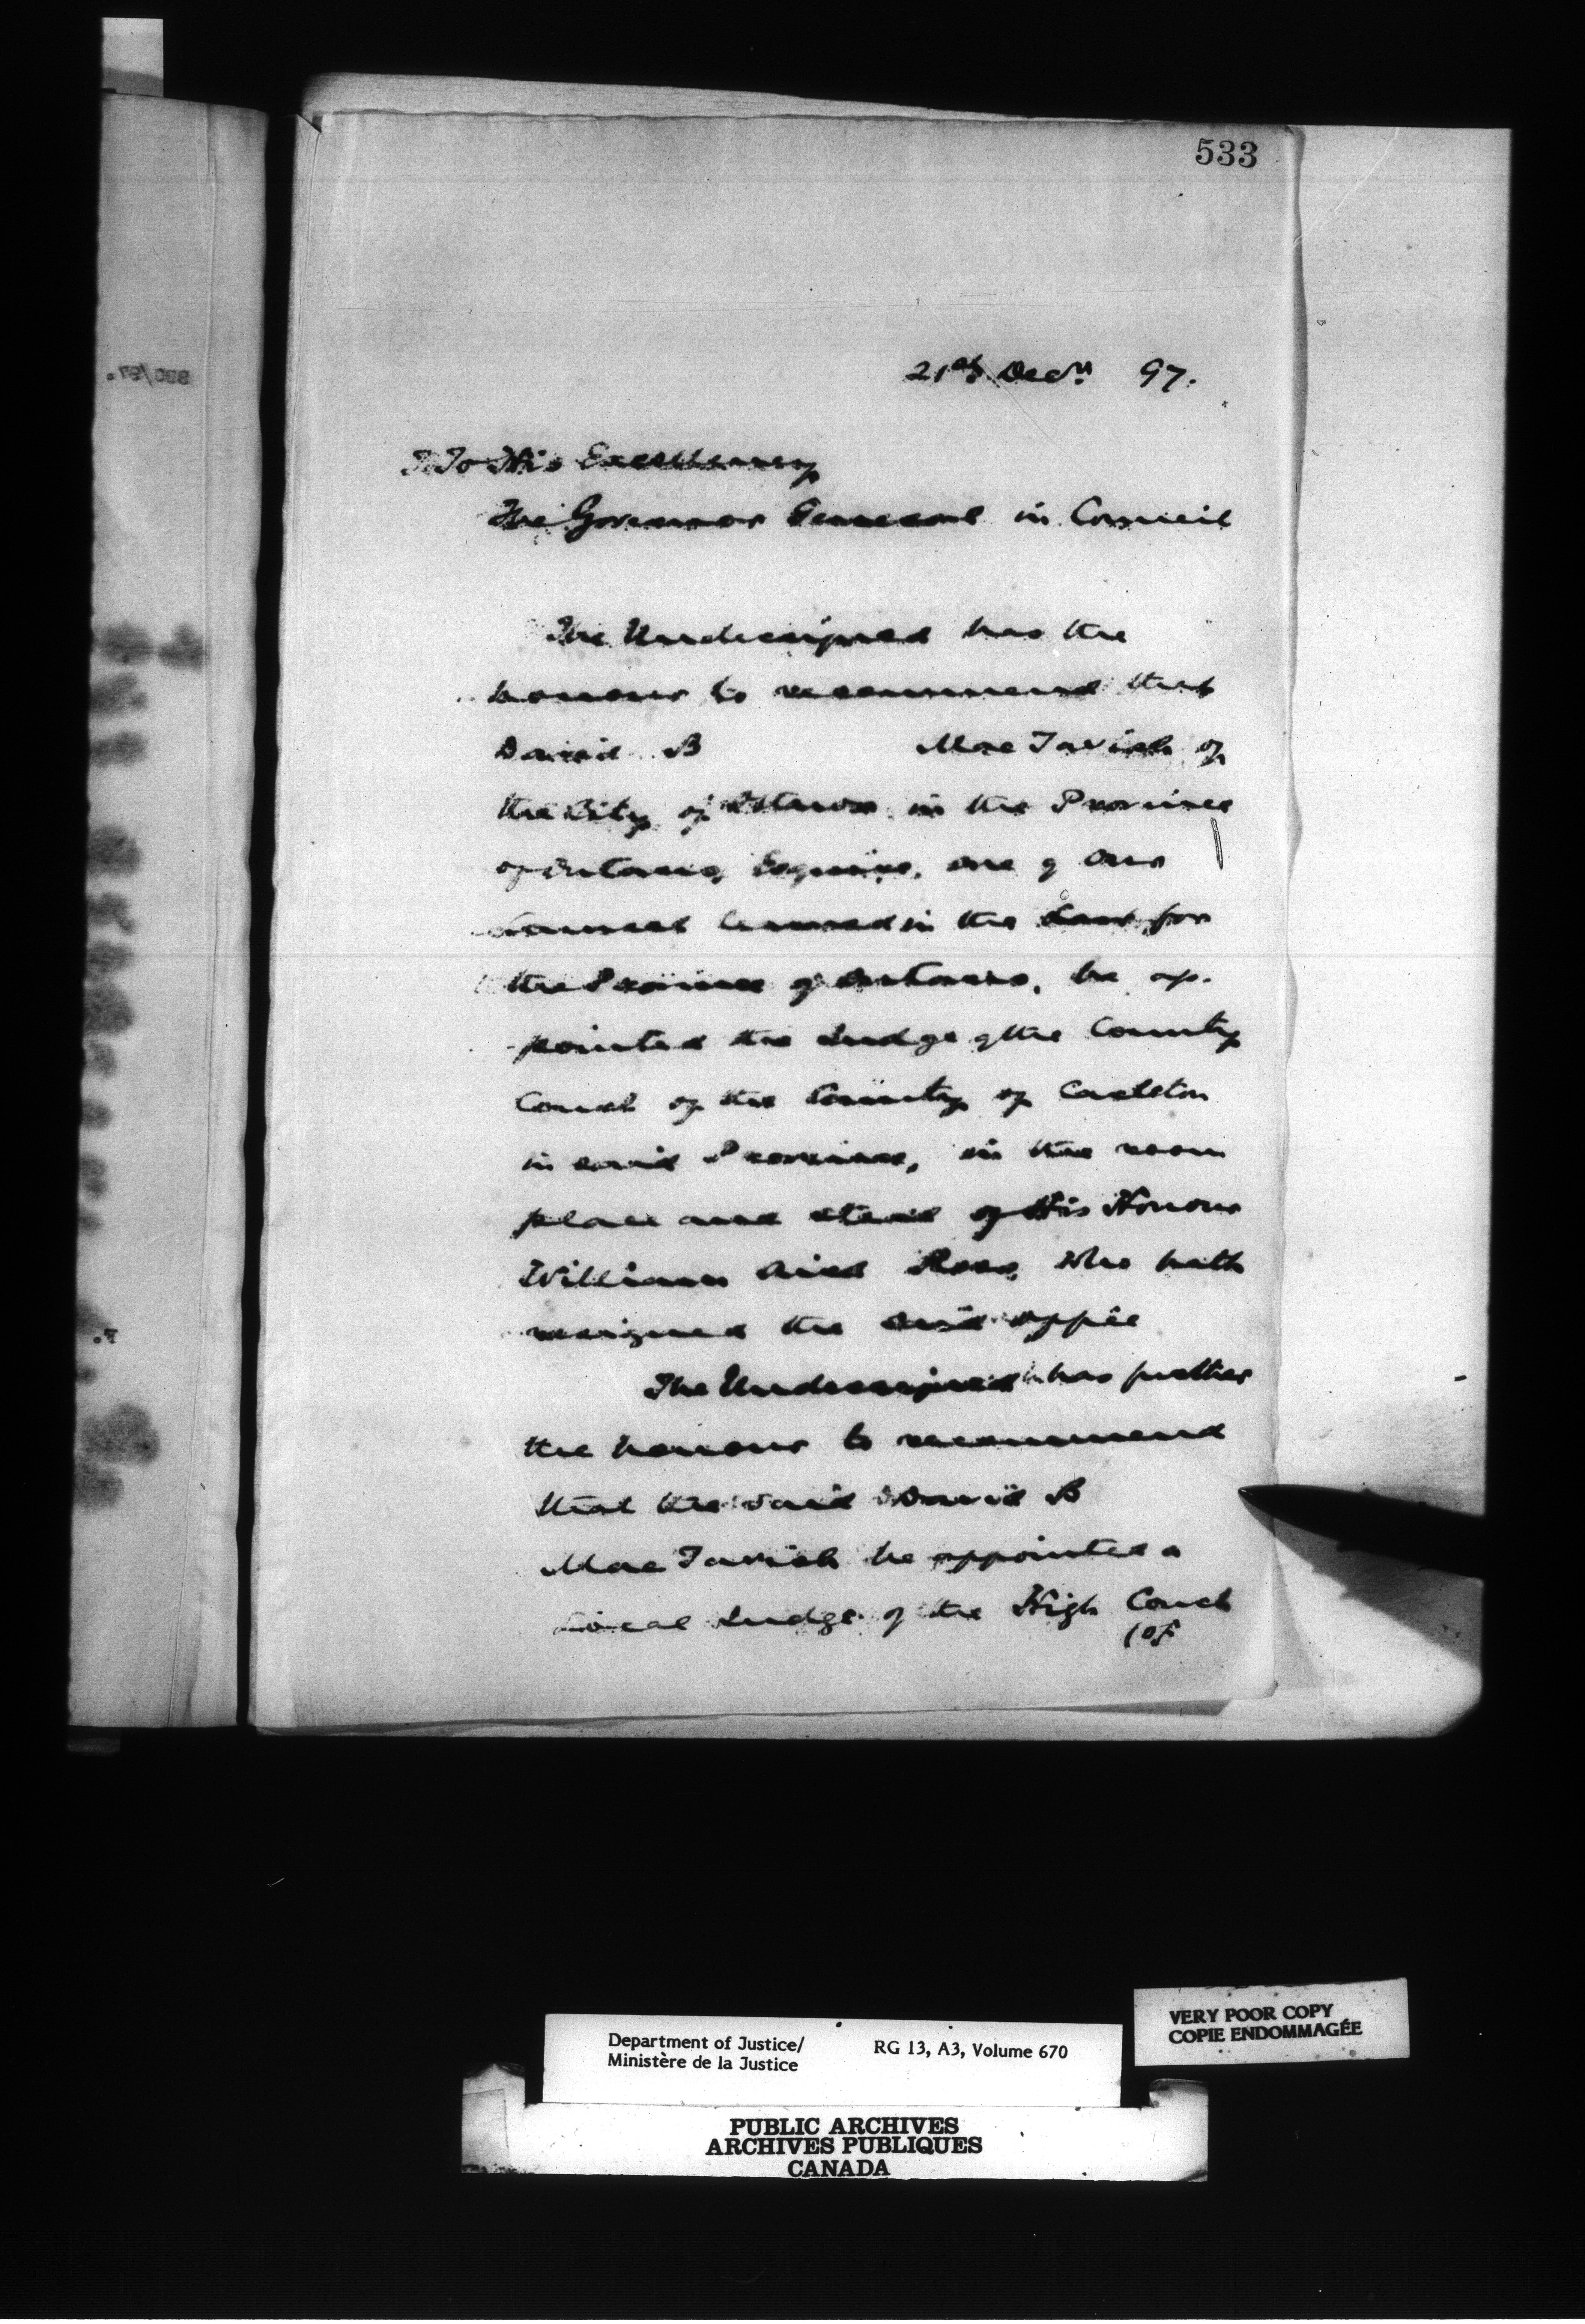 533
21st Decr. 97.
To His Excellency
The Governor General in Council
The Undersigned has the
honour to recommend that
David B MacTavish of
the City of Ottawa in the Province
of Ontario, Esquire, one of Our
Counsel learned in the Law for
the Province of Ontario, be ap-
pointed the Judge of the County
Court of the County of Carleton
in said Province, in the room
place and stead of His Honour
William Aird Ross, who hath
resigned the said office
The Undersigned has further
the honour to recommend
that the said David B
MacTavish be appointed a
Local Judge of the High Court
(of
VERY POOR COPY
COPIE ENDOMMAGÉE
Department of Justice/ RG 13, A3, Volume 670
Ministère de la Justice
PUBLIC ARCHIVES
ARCHIVES PUBLIQUES
CANADA